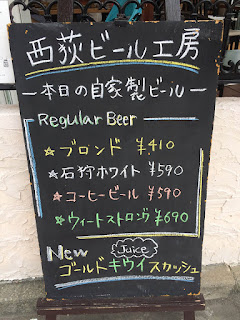 西荻ビール工房
ー本日の自家製ビールー
Regular Beer
☆ブロンド ¥410
☆石狩ホワイト ¥590
☆コーヒービール ¥590
☆ウィートストロング ¥690
New Juice
ゴールドキウイスカッシュ